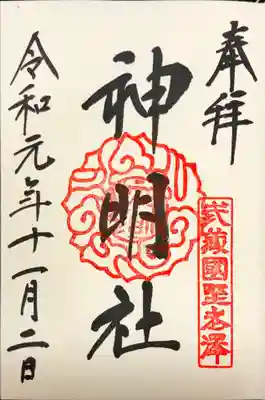 奉拝
武蔵國至志澤
神明社
令和元年十一月二日